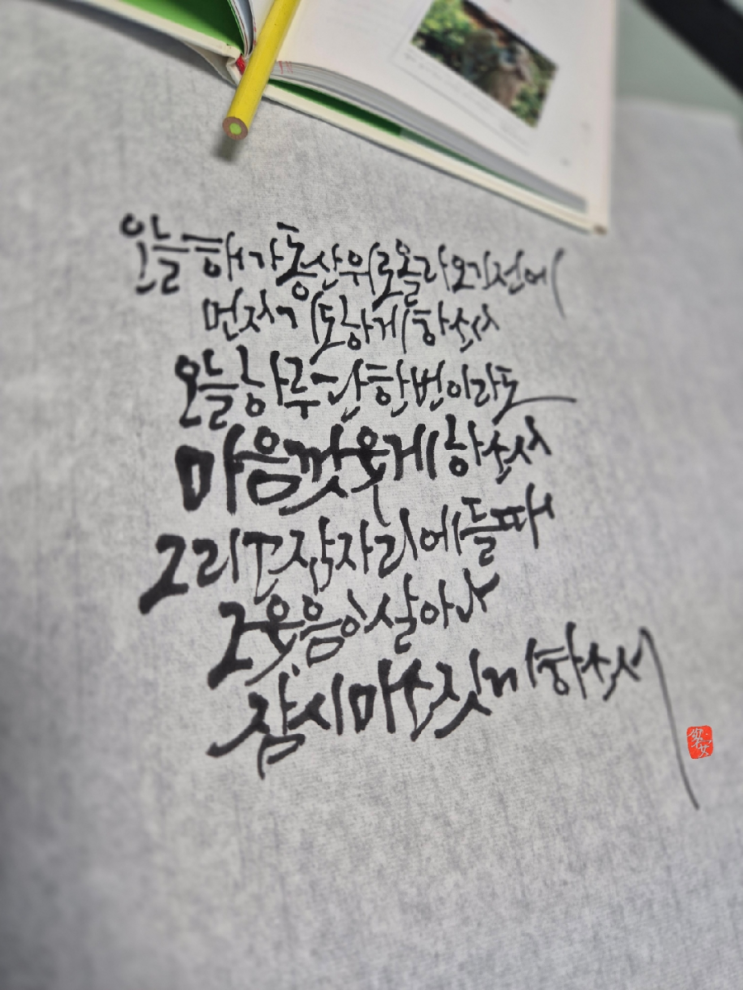 오늘 해가 동산 위로 올라오기 전에
먼저 기도하게 하소서
오늘 하루 단 한번이라도
마음껏 웃게 하소서
그리고 잠자리에 들 때
그 웃음이 살아나
잠시 미소짓게 하소서